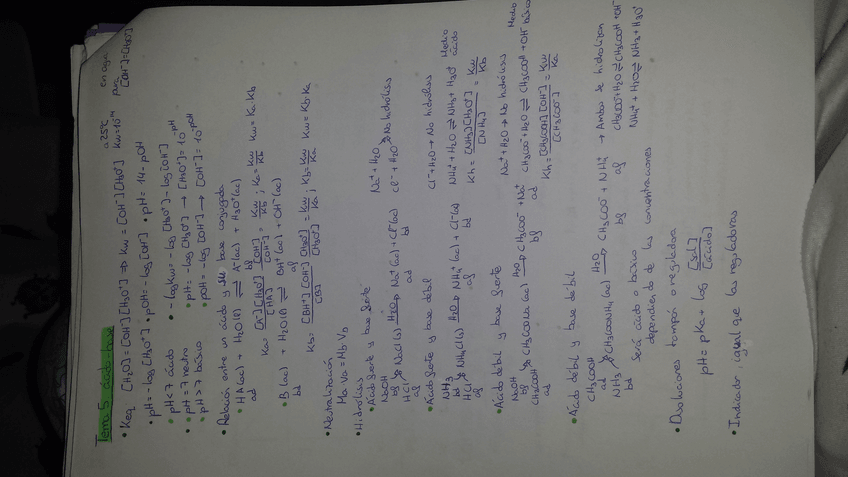 Tema 5. ácido-base
• Keq [H₂O] = [OH⁻][H₃O⁺] ⇒ Kw = [OH⁻][H₃O⁺] a 25ºC Kw = 10⁻¹⁴ en agua pura [OH⁻] = [H₃O⁺]
• pH = -log [H₃O⁺] • pOH = -log [OH⁻] • pH = 14 - pOH
• pH < 7 ácido • -log Kw = -log [H₃O⁺] - log [OH⁻]
• pH = 7 neutro • pH = -log [H₃O⁺] → [H₃O⁺] = 10^-pH
• pH > 7 básico • pOH = -log [OH⁻] → [OH⁻] = 10^-pOH
• Relación entre un ácido y su base conjugada
• HA (ac) + H₂O (l) ⇌ A⁻ (ac) + H₃O⁺ (ac)
ad bf
Ka = [A⁻][H₃O⁺] / [HA] · [OH⁻] / [OH⁻] = Kw / Kb ; Ka = Kw / Kb Kw = Ka·Kb
• B (ac) + H₂O (l) ⇌ BH⁺ (ac) + OH⁻ (ac)
bd af
Kb = [BH⁺][OH⁻] / [B] · [H₃O⁺] / [H₃O⁺] = Kw / Ka ; Kb = Kw / Ka Kw = Kb·Ka
• Neutralización
Ma Va = Mb Vb
• Hidrólisis
• Ácido fuerte y base fuerte
NaOH Na⁺ + H₂O
bf NaCl (s) H₂O→ Na⁺ (ac) + Cl⁻ (ac) No hidrólisis
HCl ad bd Cl⁻ + H₂O
af
• Ácido fuerte y base débil Cl⁻ + H₂O → No hidrólisis
NH₃
bd NH₄Cl (s) H₂O→ NH₄⁺ (ac) + Cl⁻ (ac) NH₄⁺ + H₂O ⇌ NH₃ + H₃O⁺ Medio ácido
HCl af bd
af Kh = [NH₃][H₃O⁺] / [NH₄⁺] = Kw / Kb
• Ácido débil y base fuerte Na⁺ + H₂O → No hidrólisis
NaOH
bf CH₃COONa (ac) H₂O→ CH₃COO⁻ + Na⁺ CH₃COO⁻ + H₂O ⇌ CH₃COOH + OH⁻ Medio básico
CH₃COOH bf ad
ad Kh = [CH₃COOH][OH⁻] / [CH₃COO⁻] = Kw / Ka
• Ácido débil y base débil
CH₃COOH
ad CH₃COONH₄ (ac) H₂O→ CH₃COO⁻ + NH₄⁺ → Ambos se hidrolizan
NH₃ bf af CH₃COO⁻ + H₂O ⇌ CH₃COOH + OH⁻
bd NH₄⁺ + H₂O ⇌ NH₃ + H₃O⁺
Será ácido o básico
dependiendo de las concentraciones
• Disoluciones tampón o reguladora
pH = pKa + log [sal] / [ácido]
• Indicador, igual que las reguladoras